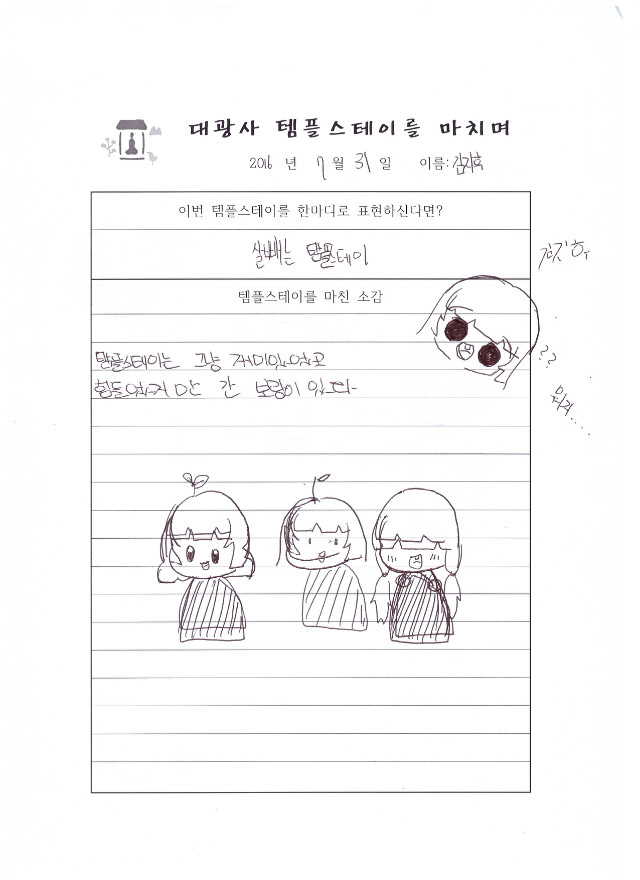 대광사 템플스테이를 마치며
2016 년 7 월 31 일 이름: 김지호
이번 템플스테이를 한마디로 표현하신다면?
살빼는 템플스테이
김지후
템플스테이를 마친 소감
템플스테이는 그냥 재미있었고
힘들었지만 간 보람이 있다
??
뭐지....